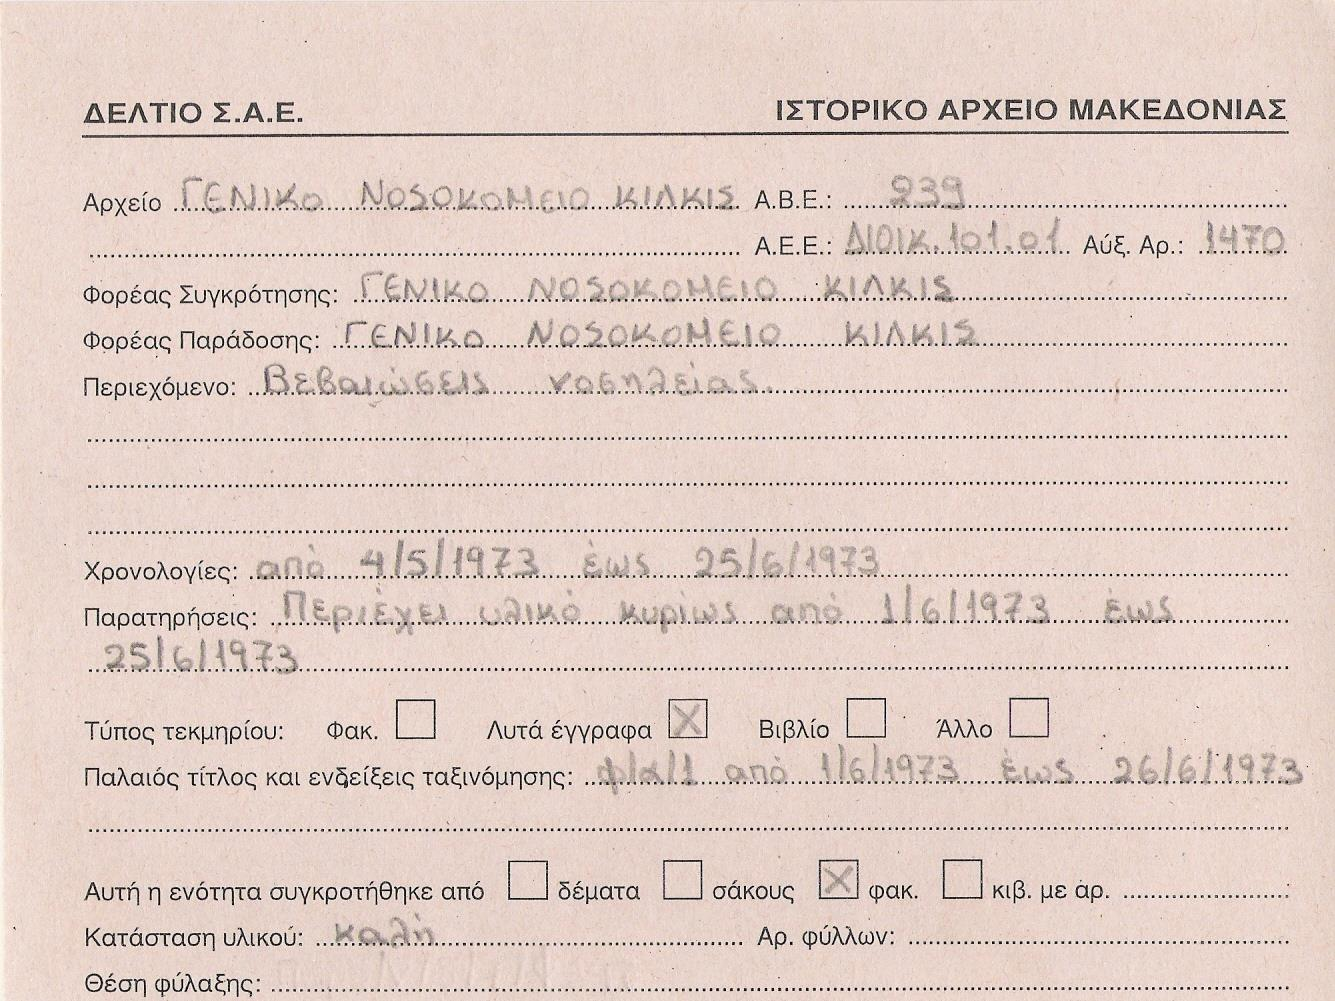 ΔΕΛΤΙΟ Σ.Α.Ε. ΙΣΤΟΡΙΚΟ ΑΡΧΕΙΟ ΜΑΚΕΔΟΝΙΑΣ
Αρχείο ΓΕΝΙΚΟ ΝΟΣΟΚΟΜΕΙΟ ΚΙΛΚΙΣ Α.Β.Ε.: 239
Α.Ε.Ε.: ΔΙΟΙΚ.101.01 Αύξ. Αρ.: 1470
Φορέας Συγκρότησης: ΓΕΝΙΚΟ ΝΟΣΟΚΟΜΕΙΟ ΚΙΛΚΙΣ
Φορέας Παράδοσης: ΓΕΝΙΚΟ ΝΟΣΟΚΟΜΕΙΟ ΚΙΛΚΙΣ
Περιεχόμενο: Βεβαιώσεις νοσηλείας.
Χρονολογίες: από 4/5/1973 έως 25/6/1973
Παρατηρήσεις: Περιέχει υλικό κυρίως από 1/6/1973 έως
25/6/1973
Τύπος τεκμηρίου: Φακ. Λυτά έγγραφα X Βιβλίο Άλλο
Παλαιός τίτλος και ενδείξεις ταξινόμησης: φ/α/1 από 1/6/1973 έως 26/6/1973
Αυτή η ενότητα συγκροτήθηκε από δέματα σάκους X φακ. κιβ. με αρ.
Κατάσταση υλικού: καλή Αρ. φύλλων:
Θέση φύλαξης: